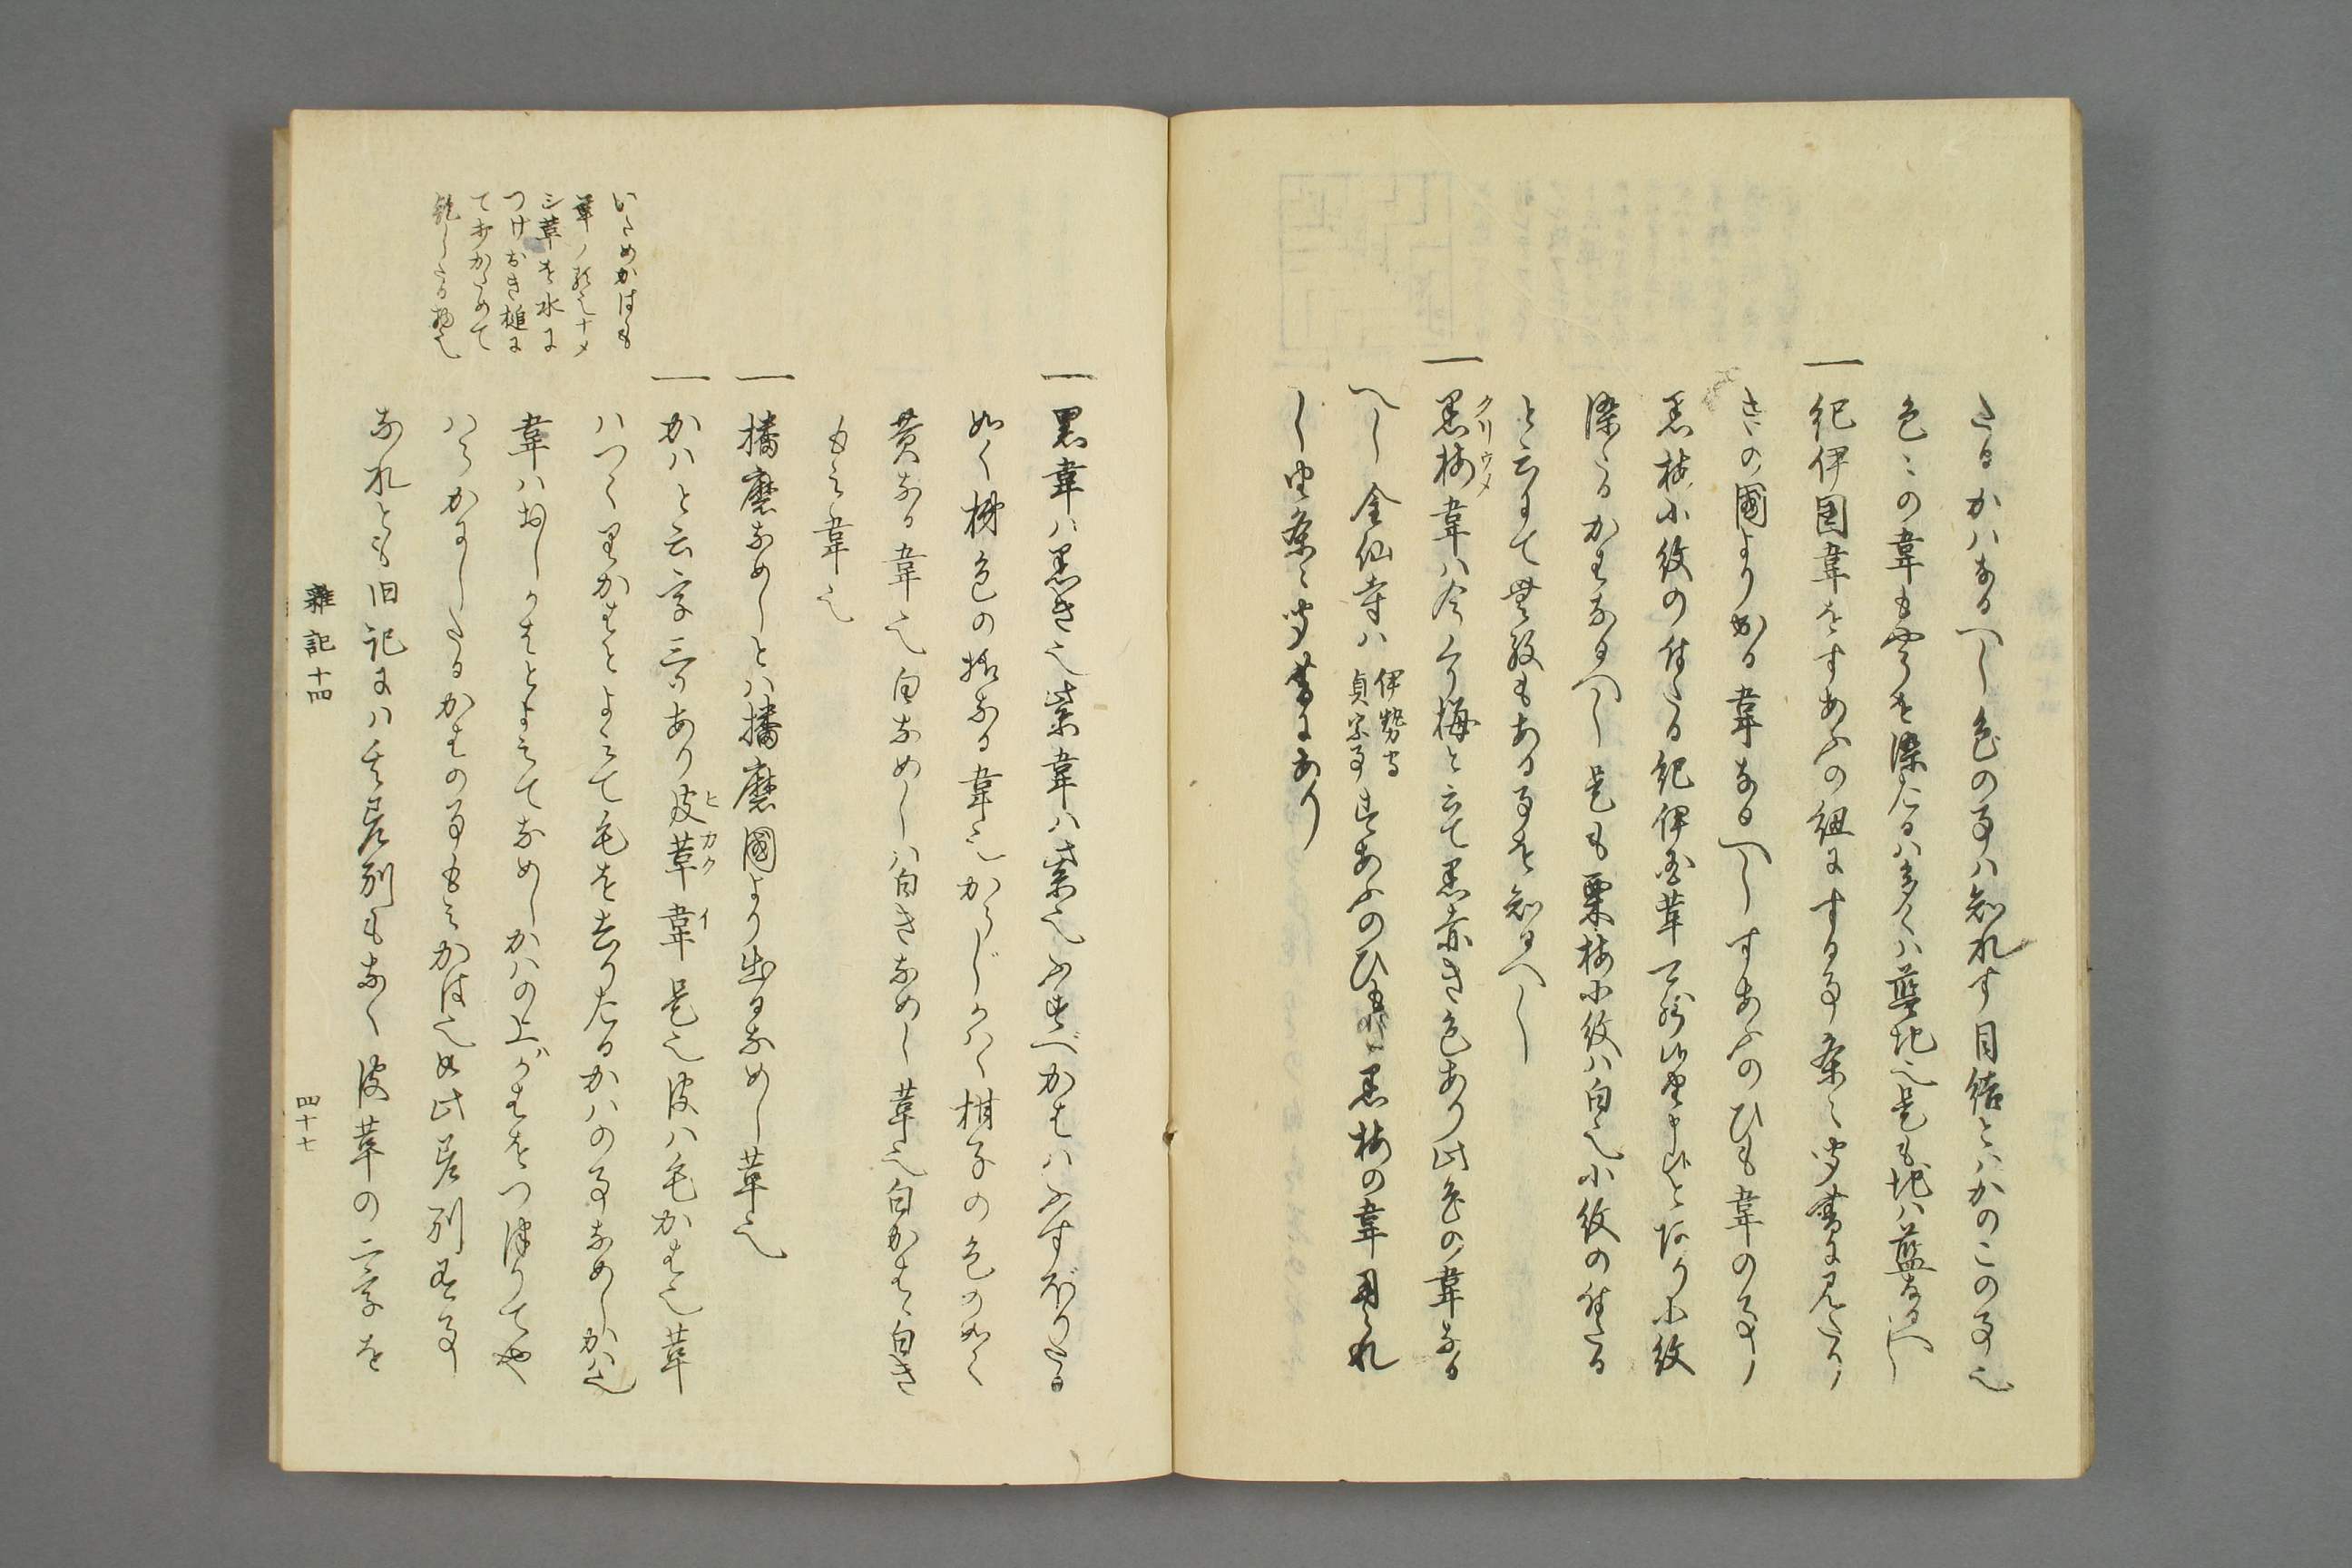 たるかハなるへし色の事ハ知れす目結とハかのこの事也
色々の韋も色を染たるハ多くハ藍地也是も地ハ藍なるへし
一 紀伊国韋をすあふの紐にする事条々聞書に見たり
きの國より出る韋なるへしすあふのひも韋の事ハ
黒梅小紋の付たる紀伊国革
染たるかわなるへし是も栗梅小紋ハ白也小紋の付たる
と云にて無紋もある事を知るへし
一 黒梅韋ハ今くり梅と云て黒赤き色あり此色の韋なる
クリウメ
へし金仙寺ハ
伊勢守
貞宗事
すあふのひもに黒梅の韋用られ
し由条々聞書にあり
一 黒韋ハ黒き也紫韋ハ紫也ふすべかわハふすぼりたる
如く柹色の様なる韋也かうじかハハ柑子の色の如く
黄なる韋也白なめしハ白きなめし革也白かわハ白き
もみ韋也
一 播磨なめしとハ播磨國より出るなめし革也
一 かハと云字三ツあり皮革韋是也皮ハ毛かわ也革
ヒ カク イ
ハつくりかわとよみて毛を去りたるかハの事なめしかハ也
韋ハおしかわとよみてなめしかハの上がわをつくりてや
ハらかにしたるかわの事もみかは也如此差別有事
なれとも旧記にハ其差別もなく皮革の二字を
いためかはも
革ノ類也ナメ
シ革を水に
つけおき槌に
て打かためて
乾したる物也
雜記十四
四十七